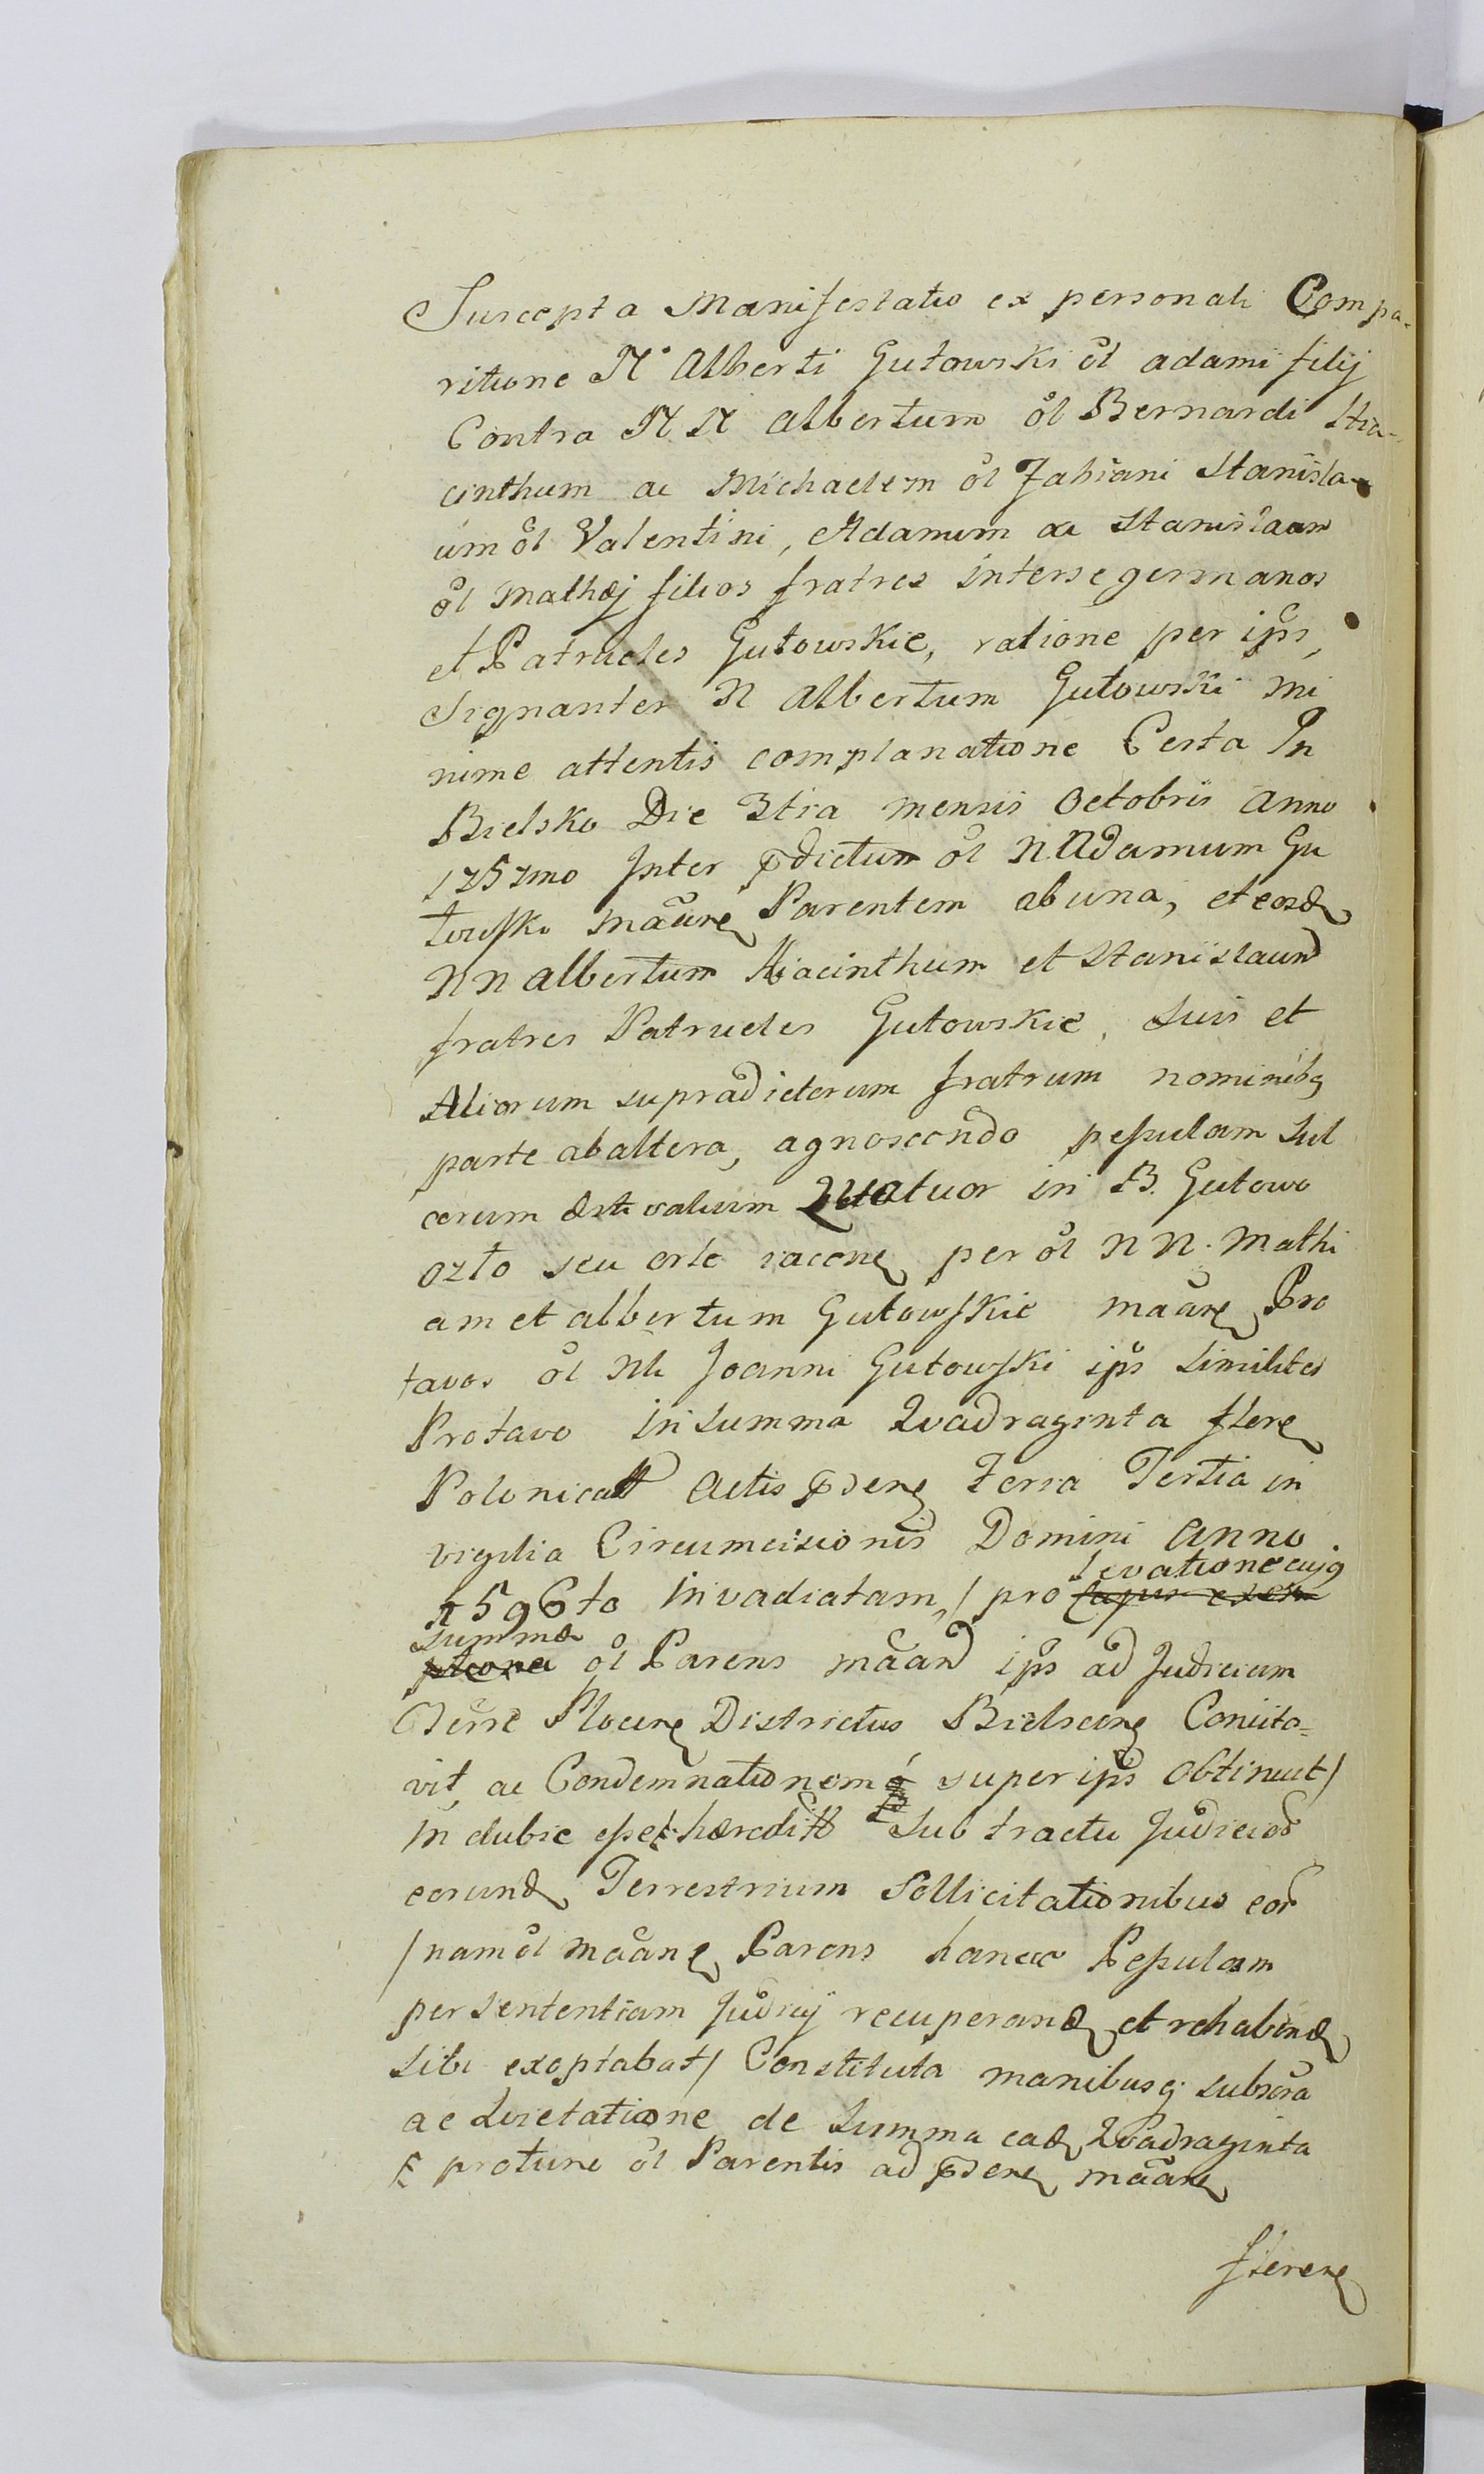 Suscepta Manifestatio ex personali Compa-
ritione N Alberti Gutowski ol adami filij
Contra N N Albertum ol Bernardi Hia-
cinthum ac Michaelem ol Fabiani Stanisla-
um ol Valentini, Adamum ac Stanislaum
ol Mathæj filios fratres interse germanos
et Patrueles Gutowskie, ratione per ips,
Signanter N Albertum Gutowski mi
nime attentis complanatione Certa In
Bielsko Die 3tia mensis Octobris Anno
1757mo Inter pdictum ol N Adamum Gu
towski maare Parentem ab una, et eosd
NN Albertum Hiacinthum et Stanislaum
fratres Patrueles Gutowskie, suis et
Aliorum supradictorum fratrum nominibq
parte ab altera, agnoscendo peſsulam sul
corum æstivalium Quatuor in B. Gutowo
ozto seu orle iacene per ol NN. Mathi
am et Albertum Gutowskie maare Pro
tavos ol Nli Joanni Gutowski ips similiter
Protavo in summa Quadraginta flere
Polonicall Actis pdene Feria Tertia in
vigilia Circumcisionis Domini Anno
levatione cujq
1596to Invadiatam, / pro
summæ
ol Parens maand ips ad Judicium
Terre Plocene Districtus Bielscene Conicito=
vit, ac Condemnationem super ips obtinuit /
in dubie eſse hæredittt Sub tractu Judicior
eorund Terrestrium Sollicitationibus eor
/ nam ol maane Parens hance Peſsulam
per sententiam Judicij recuperand et rehabend
sibi exoptabat / Constituta manibusq subscra
ac Quietatione de Summa ead Quadraginta
protunc ol Parentis ad pdene maare
flerene